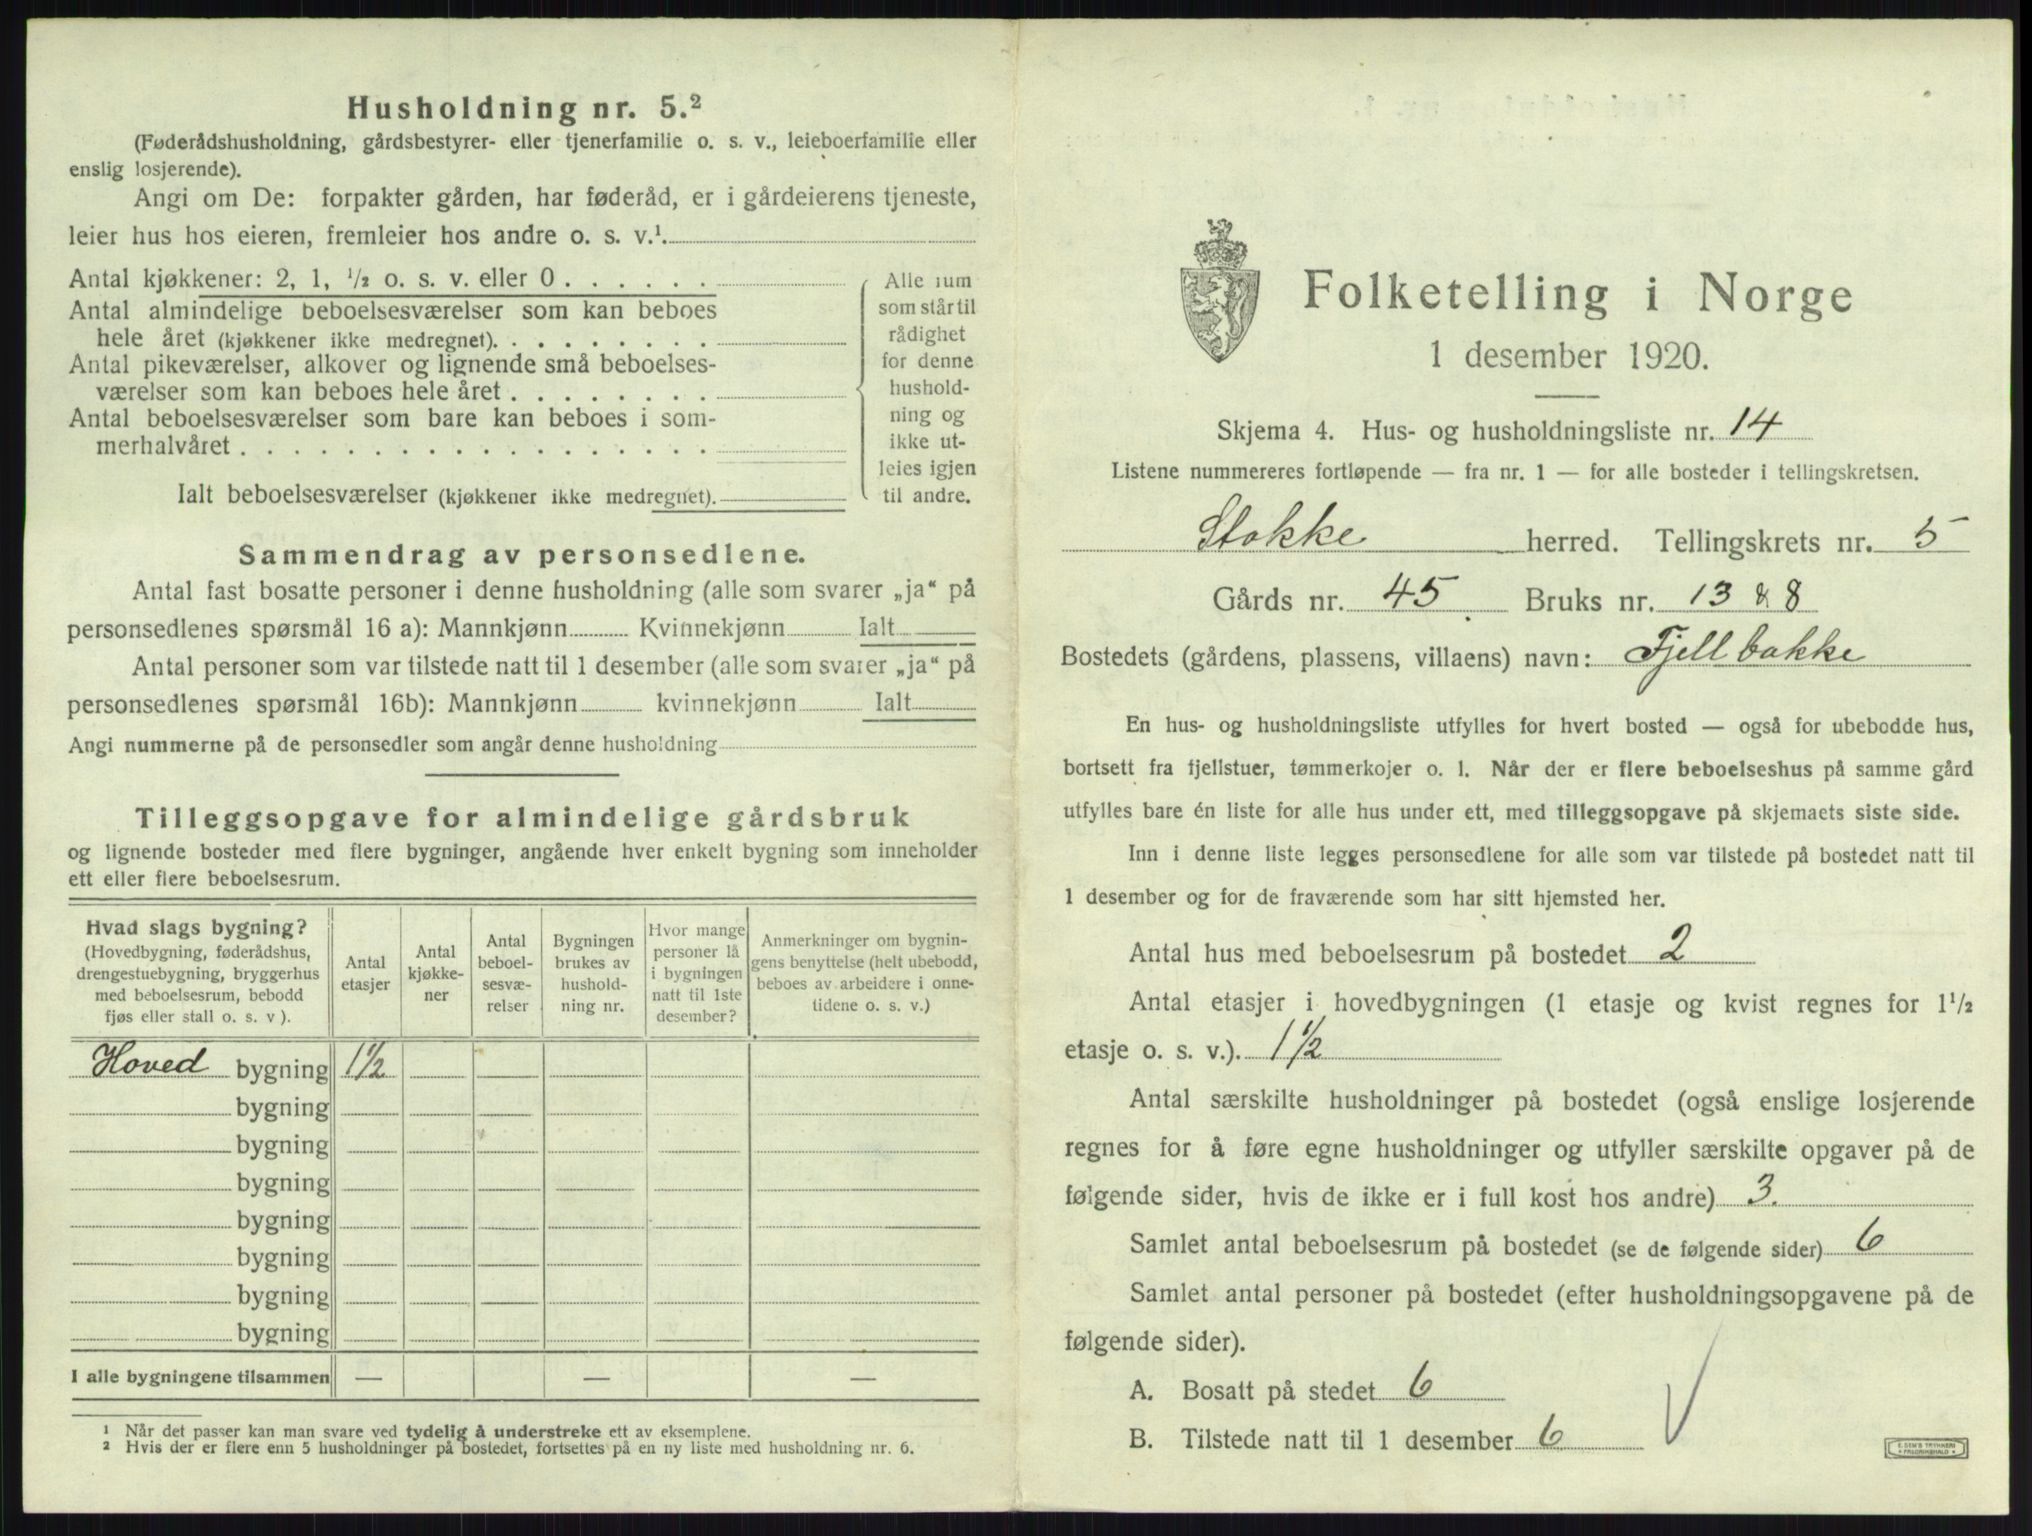 Husholdning nr. 5.²
(Føderådshusholdning, gårdsbestyrer- eller tjenerfamilie o. s. v., leieboerfamilie eller
enslig losjerende).
Angi om De: forpakter gården, har føderåd, er i gårdeierens tjeneste,
leier hus hos eieren, fremleier hos andre o. s. v.¹
Antal kjøkkener: 2, 1, ¹/₂ o. s. v. eller 0 . . . . . .
Antal almindelige beboelsesværelser som kan beboes
hele året (kjøkkener ikke medregnet). . . . . . . . .
Antal pikeværelser, alkover og lignende små beboelses-
værelser som kan beboes hele året . . . . . . . .
Antal beboelsesværelser som bare kan beboes i som-
merhalvåret . . . . . . . . . . . . . . . . . .
Ialt beboelsesværelser (kjøkkener ikke medregnet).
Alle rum
som står til
rådighet
for denne
hushold-
ning og
ikke ut-
leies igjen
til andre.
Sammendrag av personsedlene.
Antal fast bosatte personer i denne husholdning (alle som svarer „ja“ på
personsedlenes spørsmål 16 a): Mannkjønn Kvinnekjønn Ialt
Antal personer som var tilstede natt til 1 desember (alle som svarer „ja“ på
personsedlenes spørsmål 16b): Mannkjønn kvinnekjønn Ialt
Angi nummerne på de personsedler som angår denne husholdning
Tilleggsopgave for almindelige gårdsbruk
og lignende bosteder med flere bygninger, angående hver enkelt bygning som inneholder
ett eller flere beboelsesrum.
Hvad slags bygning?
(Hovedbygning, føderådshus,
drengestuebygning, bryggerhus
med beboelsesrum, bebodd
fjøs eller stall o. s. v ).
Antal
etasjer
Antal
kjøkke-
ner
Antal
beboel-
sesvæ-
relser
Bygningen
brukes av
hushold-
ning nr.
Hvor mange
personer lå
i bygningen
natt til 1ste
desember?
Anmerkninger om bygnin-
gens benyttelse (helt ubebodd,
beboes av arbeidere i onne-
tidene o. s. v.)
Hoved bygning 1½
bygning
bygning
bygning
bygning
bygning
bygning
bygning
I alle bygningene tilsammen — — —
¹ Når det passer kan man svare ved tydelig å understreke ett av eksemplene.
² Hvis der er flere enn 5 husholdninger på bostedet, fortsettes på en ny liste med husholdning nr. 6.
Folketelling i Norge
1 desember 1920.
Skjema 4. Hus- og husholdningsliste nr. 14
Listene nummereres fortløpende — fra nr. 1 — for alle bosteder i tellingskretsen.
Stokke herred. Tellingskrets nr. 5
Gårds nr. 45 Bruks nr. 13 & 8
Bostedets (gårdens, plassens, villaens) navn: Fjellbakke
En hus- og husholdningsliste utfylles for hvert bosted — også for ubebodde hus,
bortsett fra fjellstuer, tømmerkojer o. l. Når der er flere beboelseshus på samme gård
utfylles bare én liste for alle hus under ett, med tilleggsopgave på skjemaets siste side.
Inn i denne liste legges personsedlene for alle som var tilstede på bostedet natt til
1 desember og for de fraværende som har sitt hjemsted her.
Antal hus med beboelsesrum på bostedet 2
Antal etasjer i hovedbygningen (1 etasje og kvist regnes for 1¹/₂
etasje o. s. v.). 1½
Antal særskilte husholdninger på bostedet (også enslige losjerende
regnes for å føre egne husholdninger og utfyller særskilte opgaver på de
følgende sider, hvis de ikke er i full kost hos andre) 3.
Samlet antal beboelsesrum på bostedet (se de følgende sider) 6
Samlet antal personer på bostedet (efter husholdningsopgavene på de
følgende sider).
A. Bosatt på stedet 6
B. Tilstede natt til 1 desember 6
E. SEM'S TRYKKERI
FREDRIKSHALD